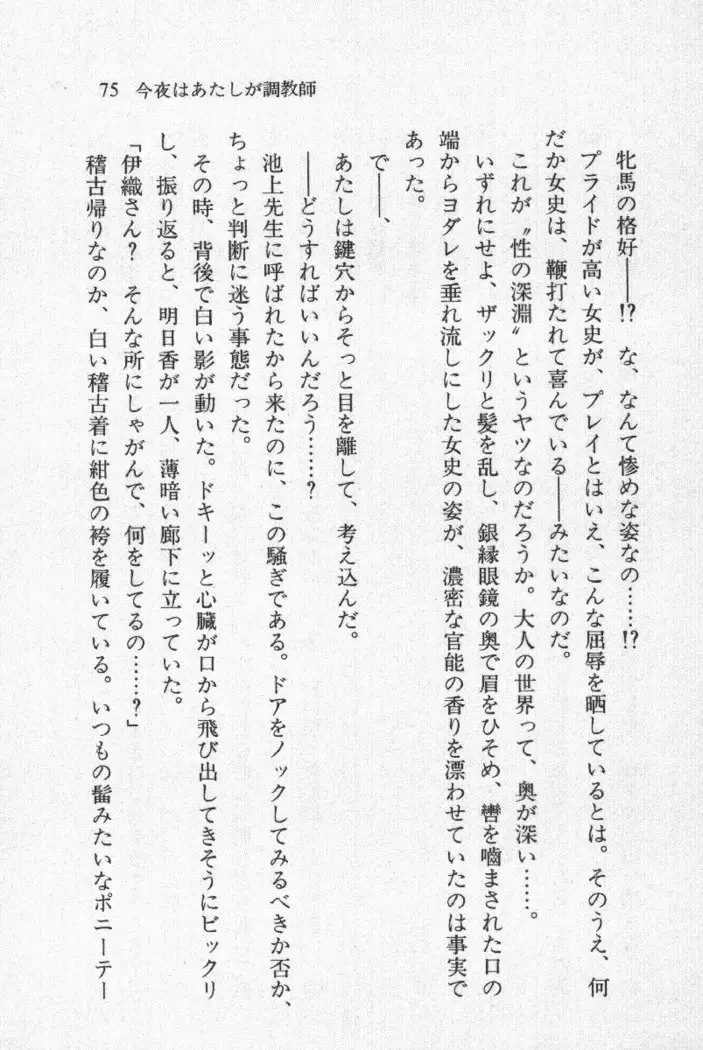 75 今夜はあたしが調教師
牝馬の格好――!? な、なんて惨めな姿なの……!?
プライドが高い女史が、プレイとはいえ、こんな屈辱を晒しているとは。そのうえ、何
だか女史は、鞭打たれて喜んでいる――みたいなのだ。
これが〝性の深淵〟というヤツなのだろうか。大人の世界って、奥が深い……。
いずれにせよ、ザックリと髪を乱し、銀縁眼鏡の奥で眉をひそめ、轡を嚙まされた口の
端からヨダレを垂れ流しにした女史の姿が、濃密な官能の香りを漂わせていたのは事実で
あった。
で――、
あたしは鍵穴からそっと目を離して、考え込んだ。
――どうすればいいんだろう……?
池上先生に呼ばれたから来たのに、この騒ぎである。ドアをノックしてみるべきか否か、
ちょっと判断に迷う事態だった。
その時、背後で白い影が動いた。ドキーッと心臓が口から飛び出してきそうにビックリ
し、振り返ると、明日香が一人、薄暗い廊下に立っていた。
「伊織さん? そんな所にしゃがんで、何をしてるの……?」
稽古帰りなのか、白い稽古着に紺色の袴を履いている。いつもの髷みたいなポニーテー